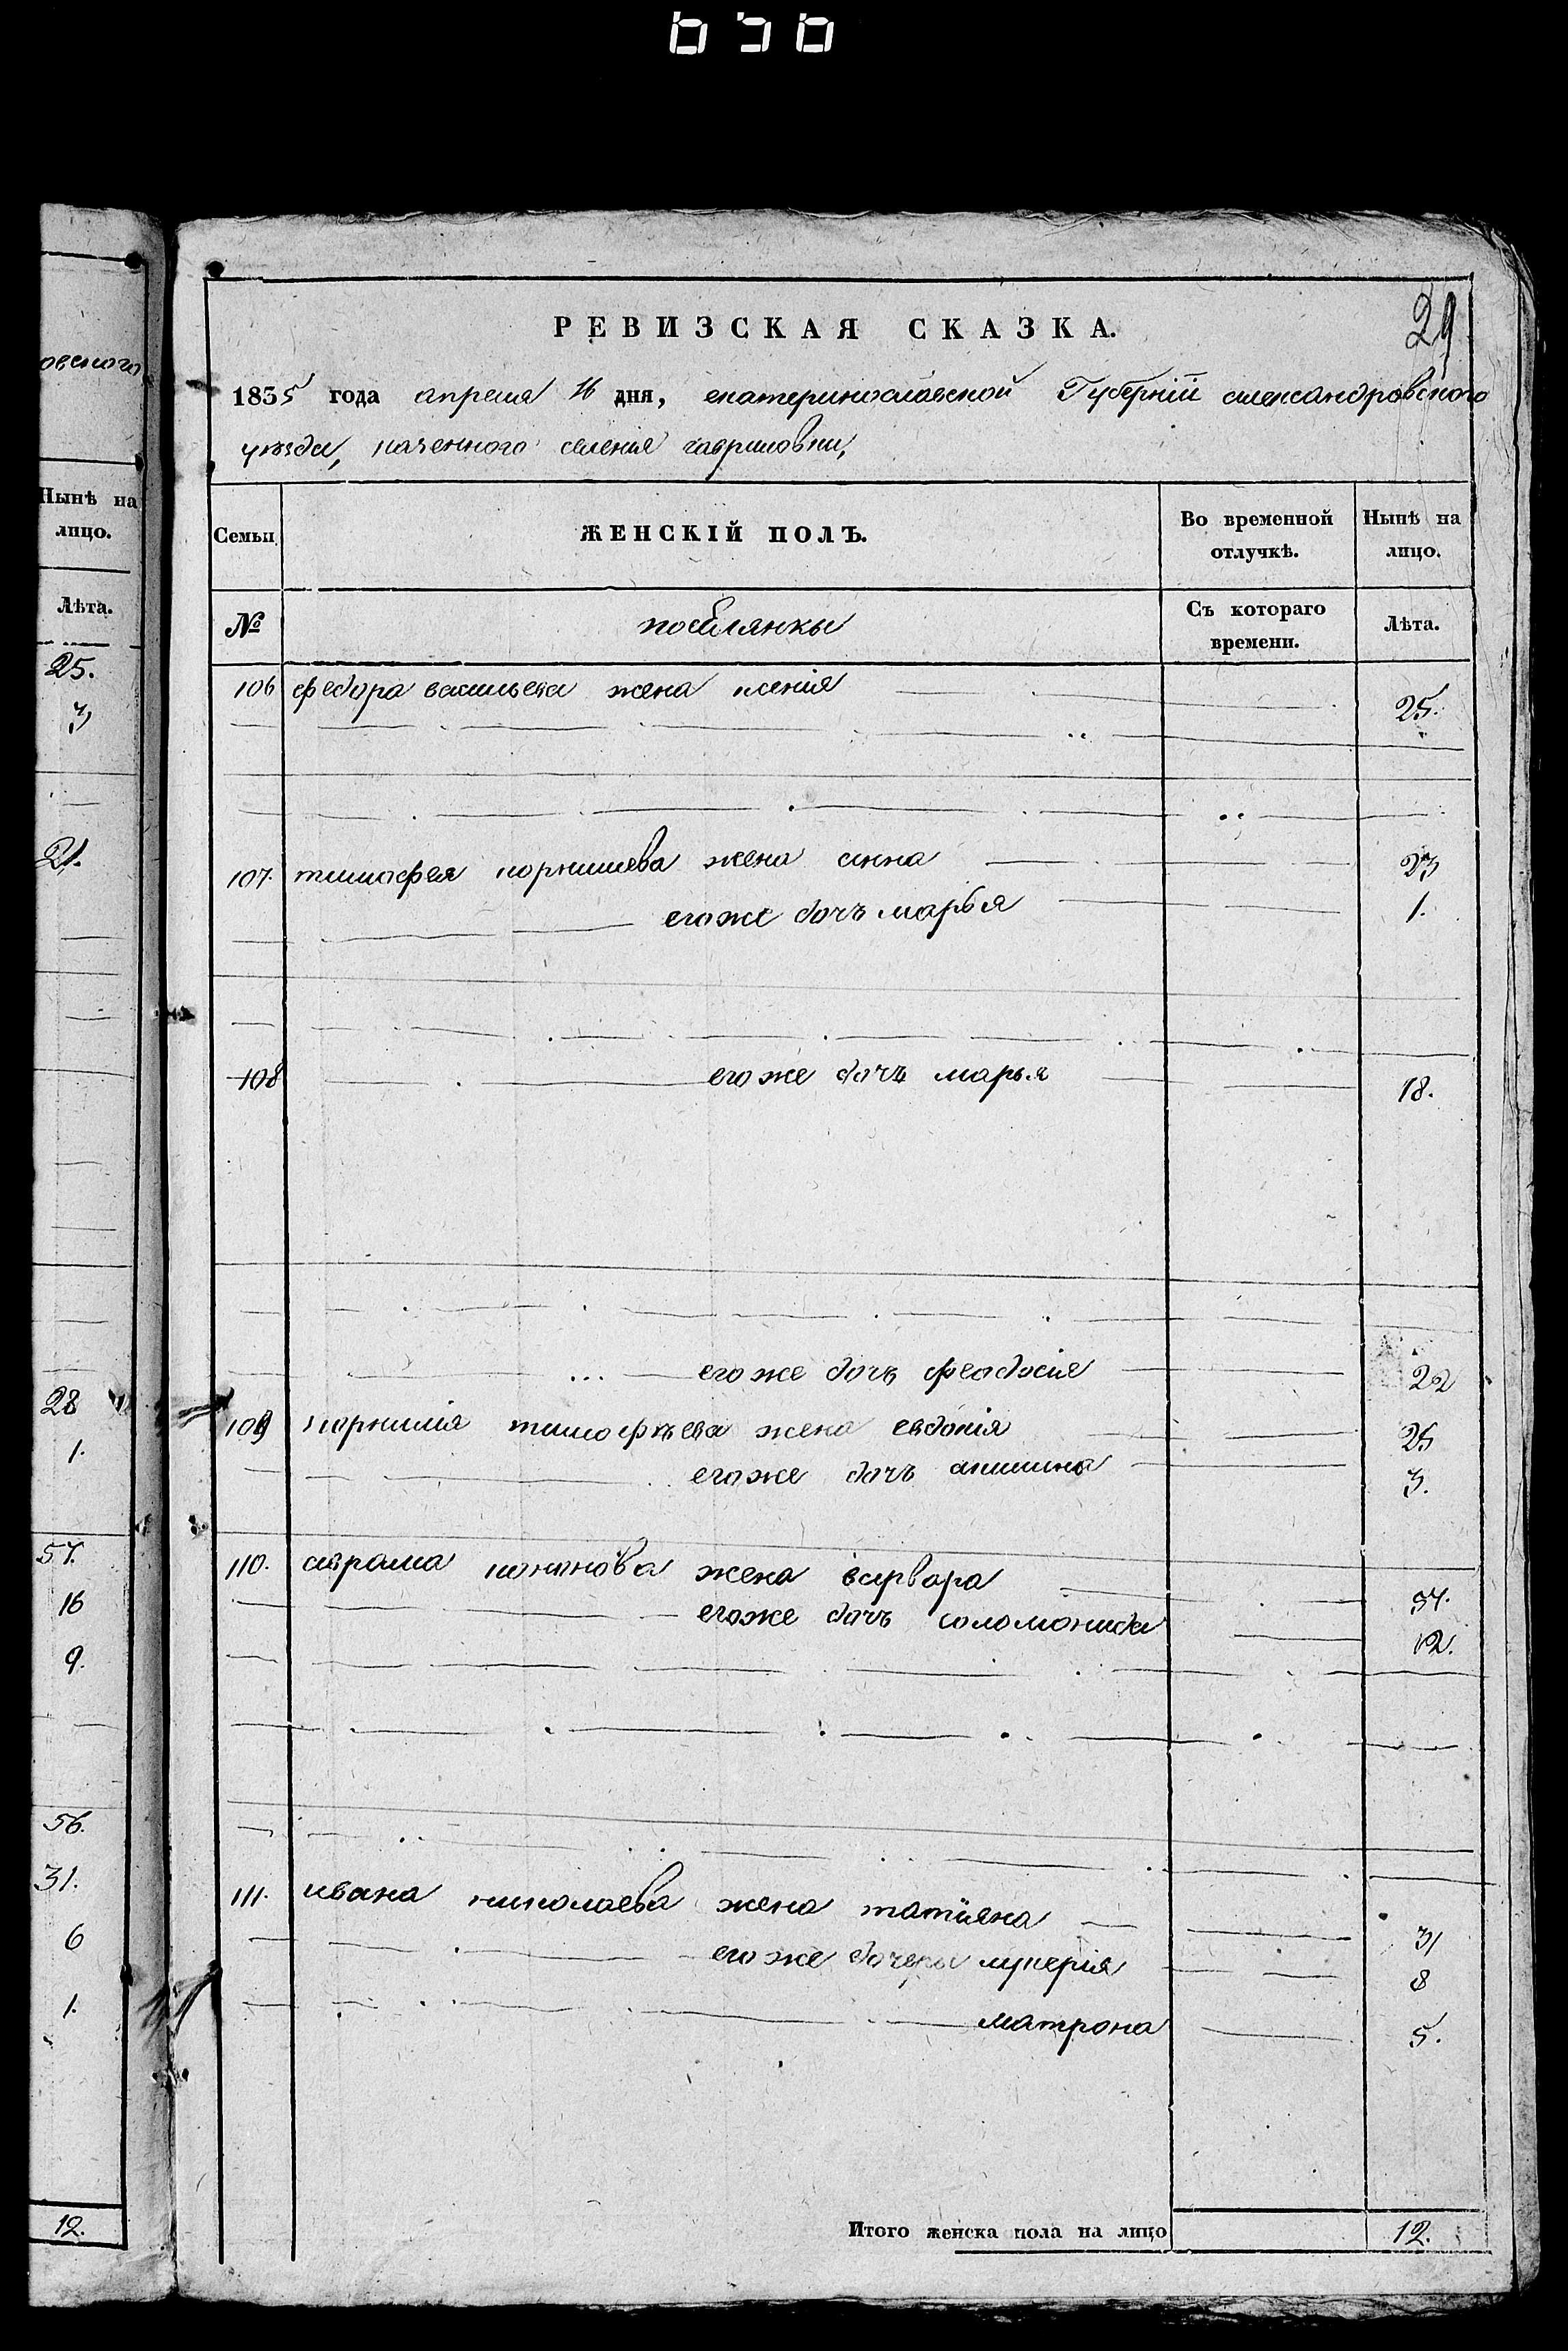 овского
Нынѣ на
лицо.
Лѣта.
25.
3
21.
28
1.
57.
16
9.
56.
31.
6
1.
12.
29
РЕВИЗСКАЯ СКАЗКА.
1835 года апреля 16 дня, екатеринославской Губерніи александровского
уѣзда, казенного селенія гавриловки,
Семьи ЖЕНСКІЙ ПОЛЪ. Во временной отлучкѣ. Нынѣ на лицо.
№ поселянки Съ котораго времени. Лѣта.
106 федора васильева жена ксенія 25.
107. тимофея корнилиева жена анна 23
егоже дочь марья 1.
108 егоже дочь марья 18.
егоже дочь феодосія 22
109 корнилія тимофѣева жена евдокія 25
егоже дочь акилина 3.
110. аврама кононова жена варвара 57.
егоже дочь соломонида 12.
111. ивана николаева жена татіяна 31
егоже дочери лукерія 8
матрона 5.
Итого женска пола на лицо 12.